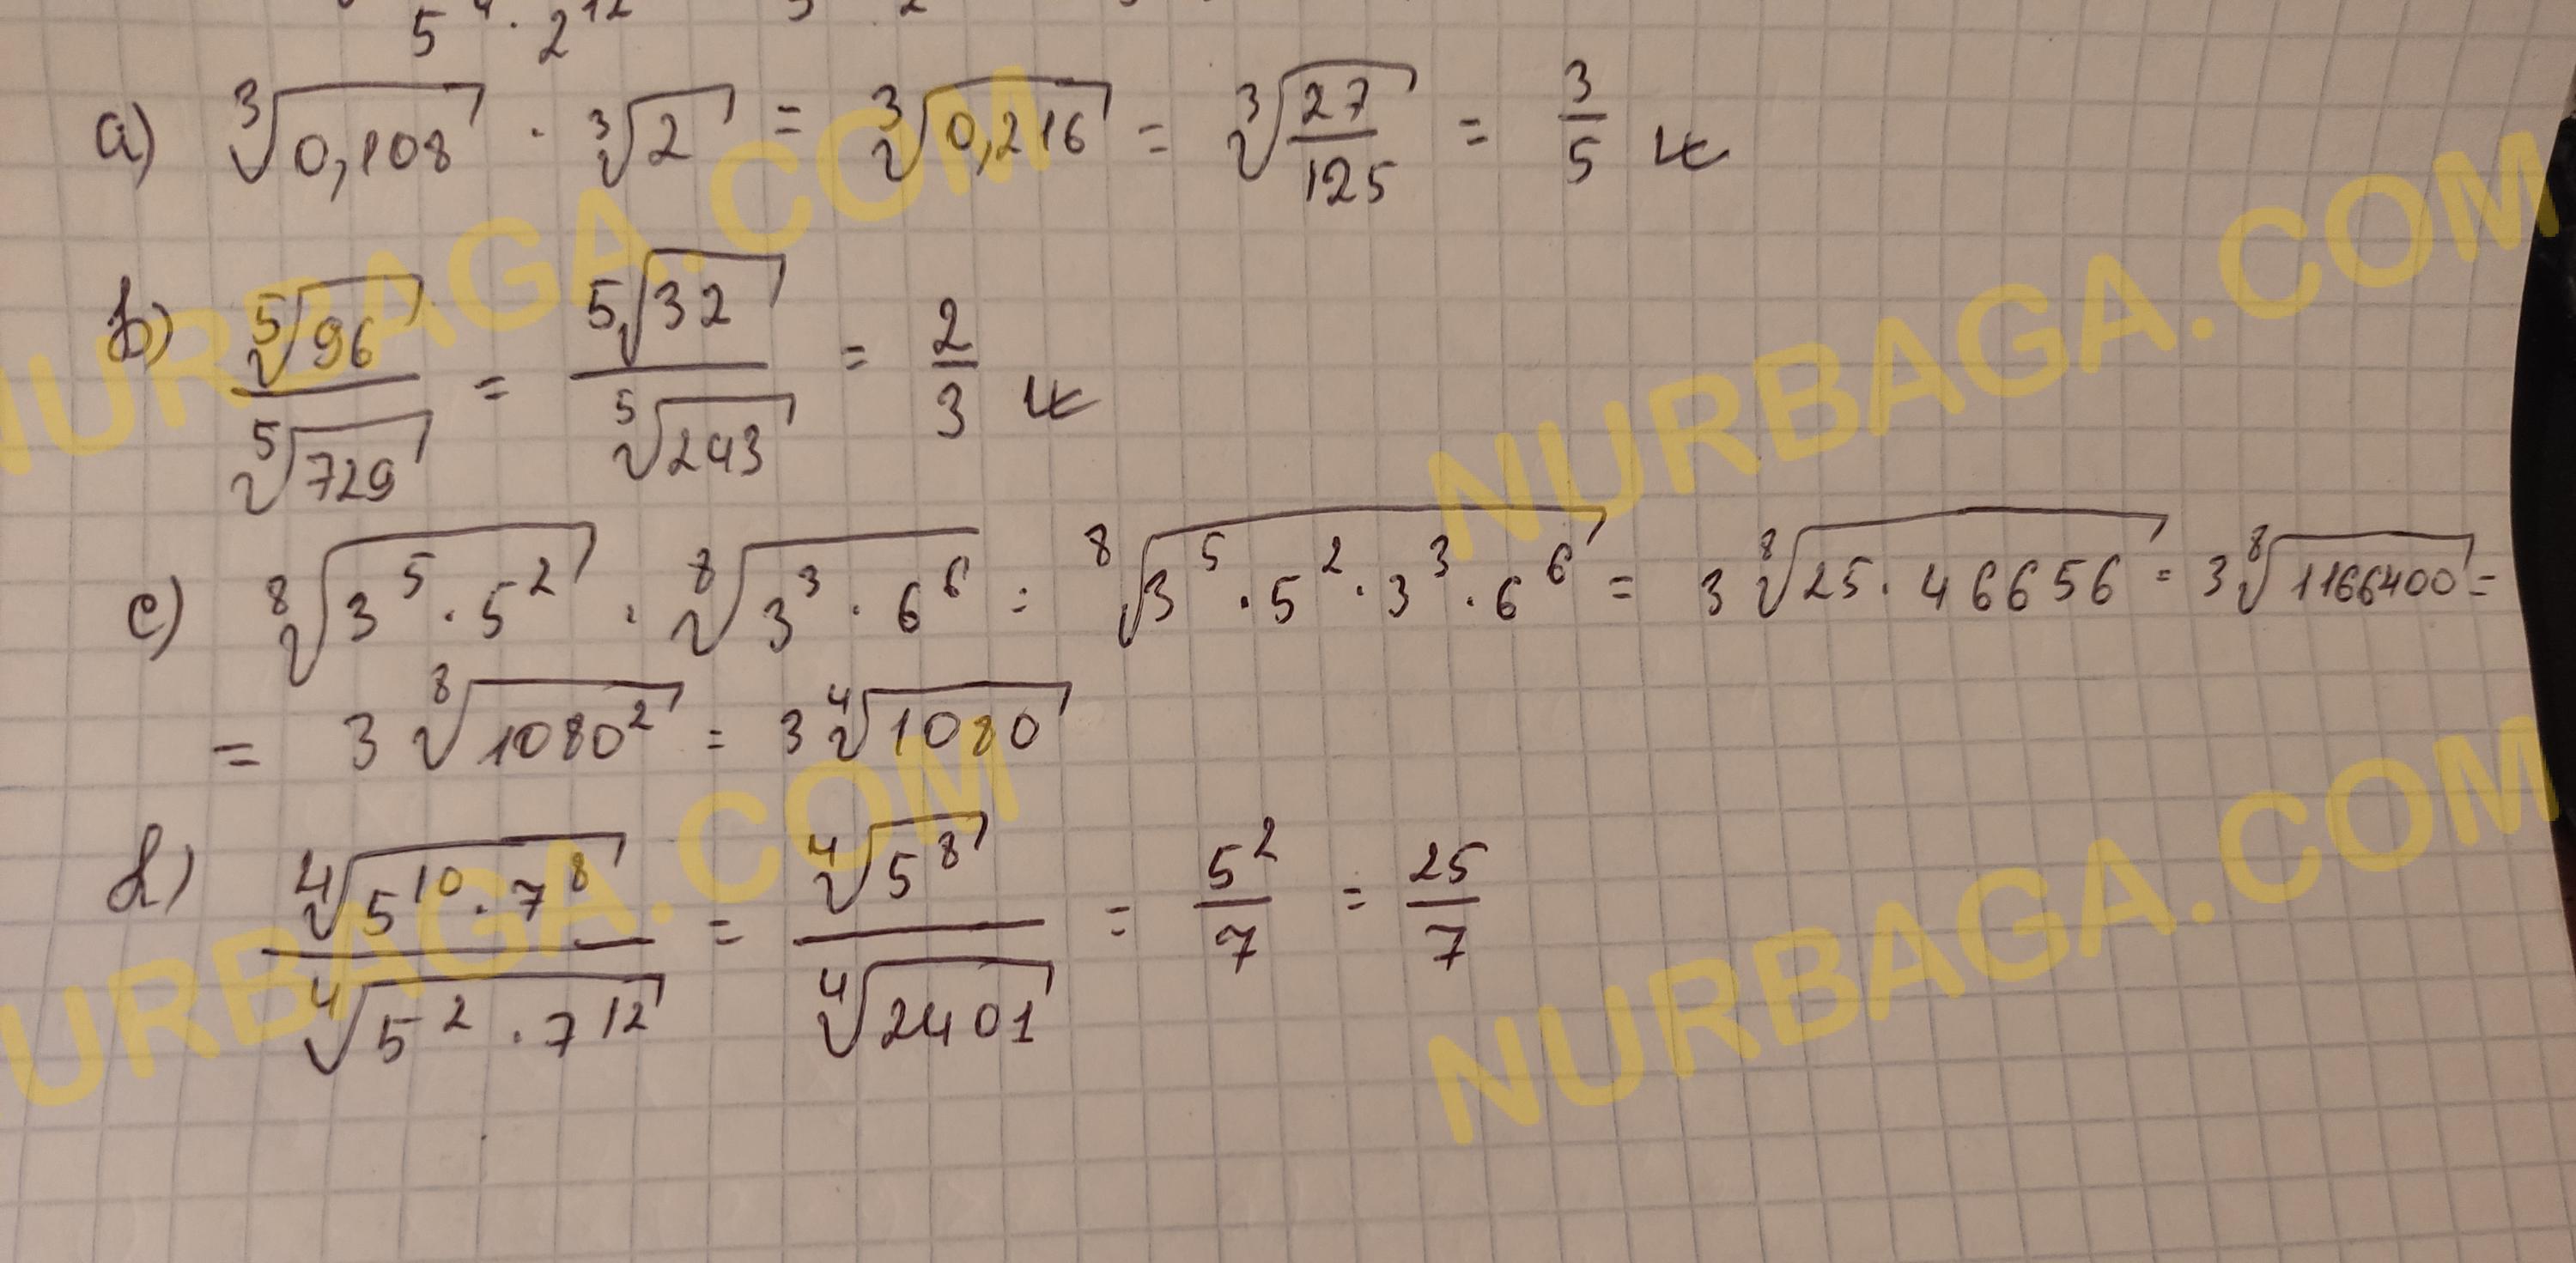 5⁴ · 2¹²
a) ∛0,108 · ∛2 = ∛0,216 = ∛(27/125) = 3/5
b) ⁵√96 / ⁵√729 = ⁵√32 / ⁵√243 = 2/3
c) ⁸√(3⁵ · 5²) · ⁸√(3³ · 6⁶) = ⁸√(3⁵ · 5² · 3³ · 6⁶) = 3 ⁸√(25 · 46656) = 3 ⁸√1166400 =
= 3 ⁸√(1080²) = 3 ⁴√1080
d) ⁴√(5¹⁰ · 7⁸) / ⁴√(5² · 7¹²) = ⁴√(5⁸) / ⁴√2401 = 5²/7 = 25/7
NURBAGA.COM
NURBAGA.COM
NURBAGA.COM
NURBAGA.COM